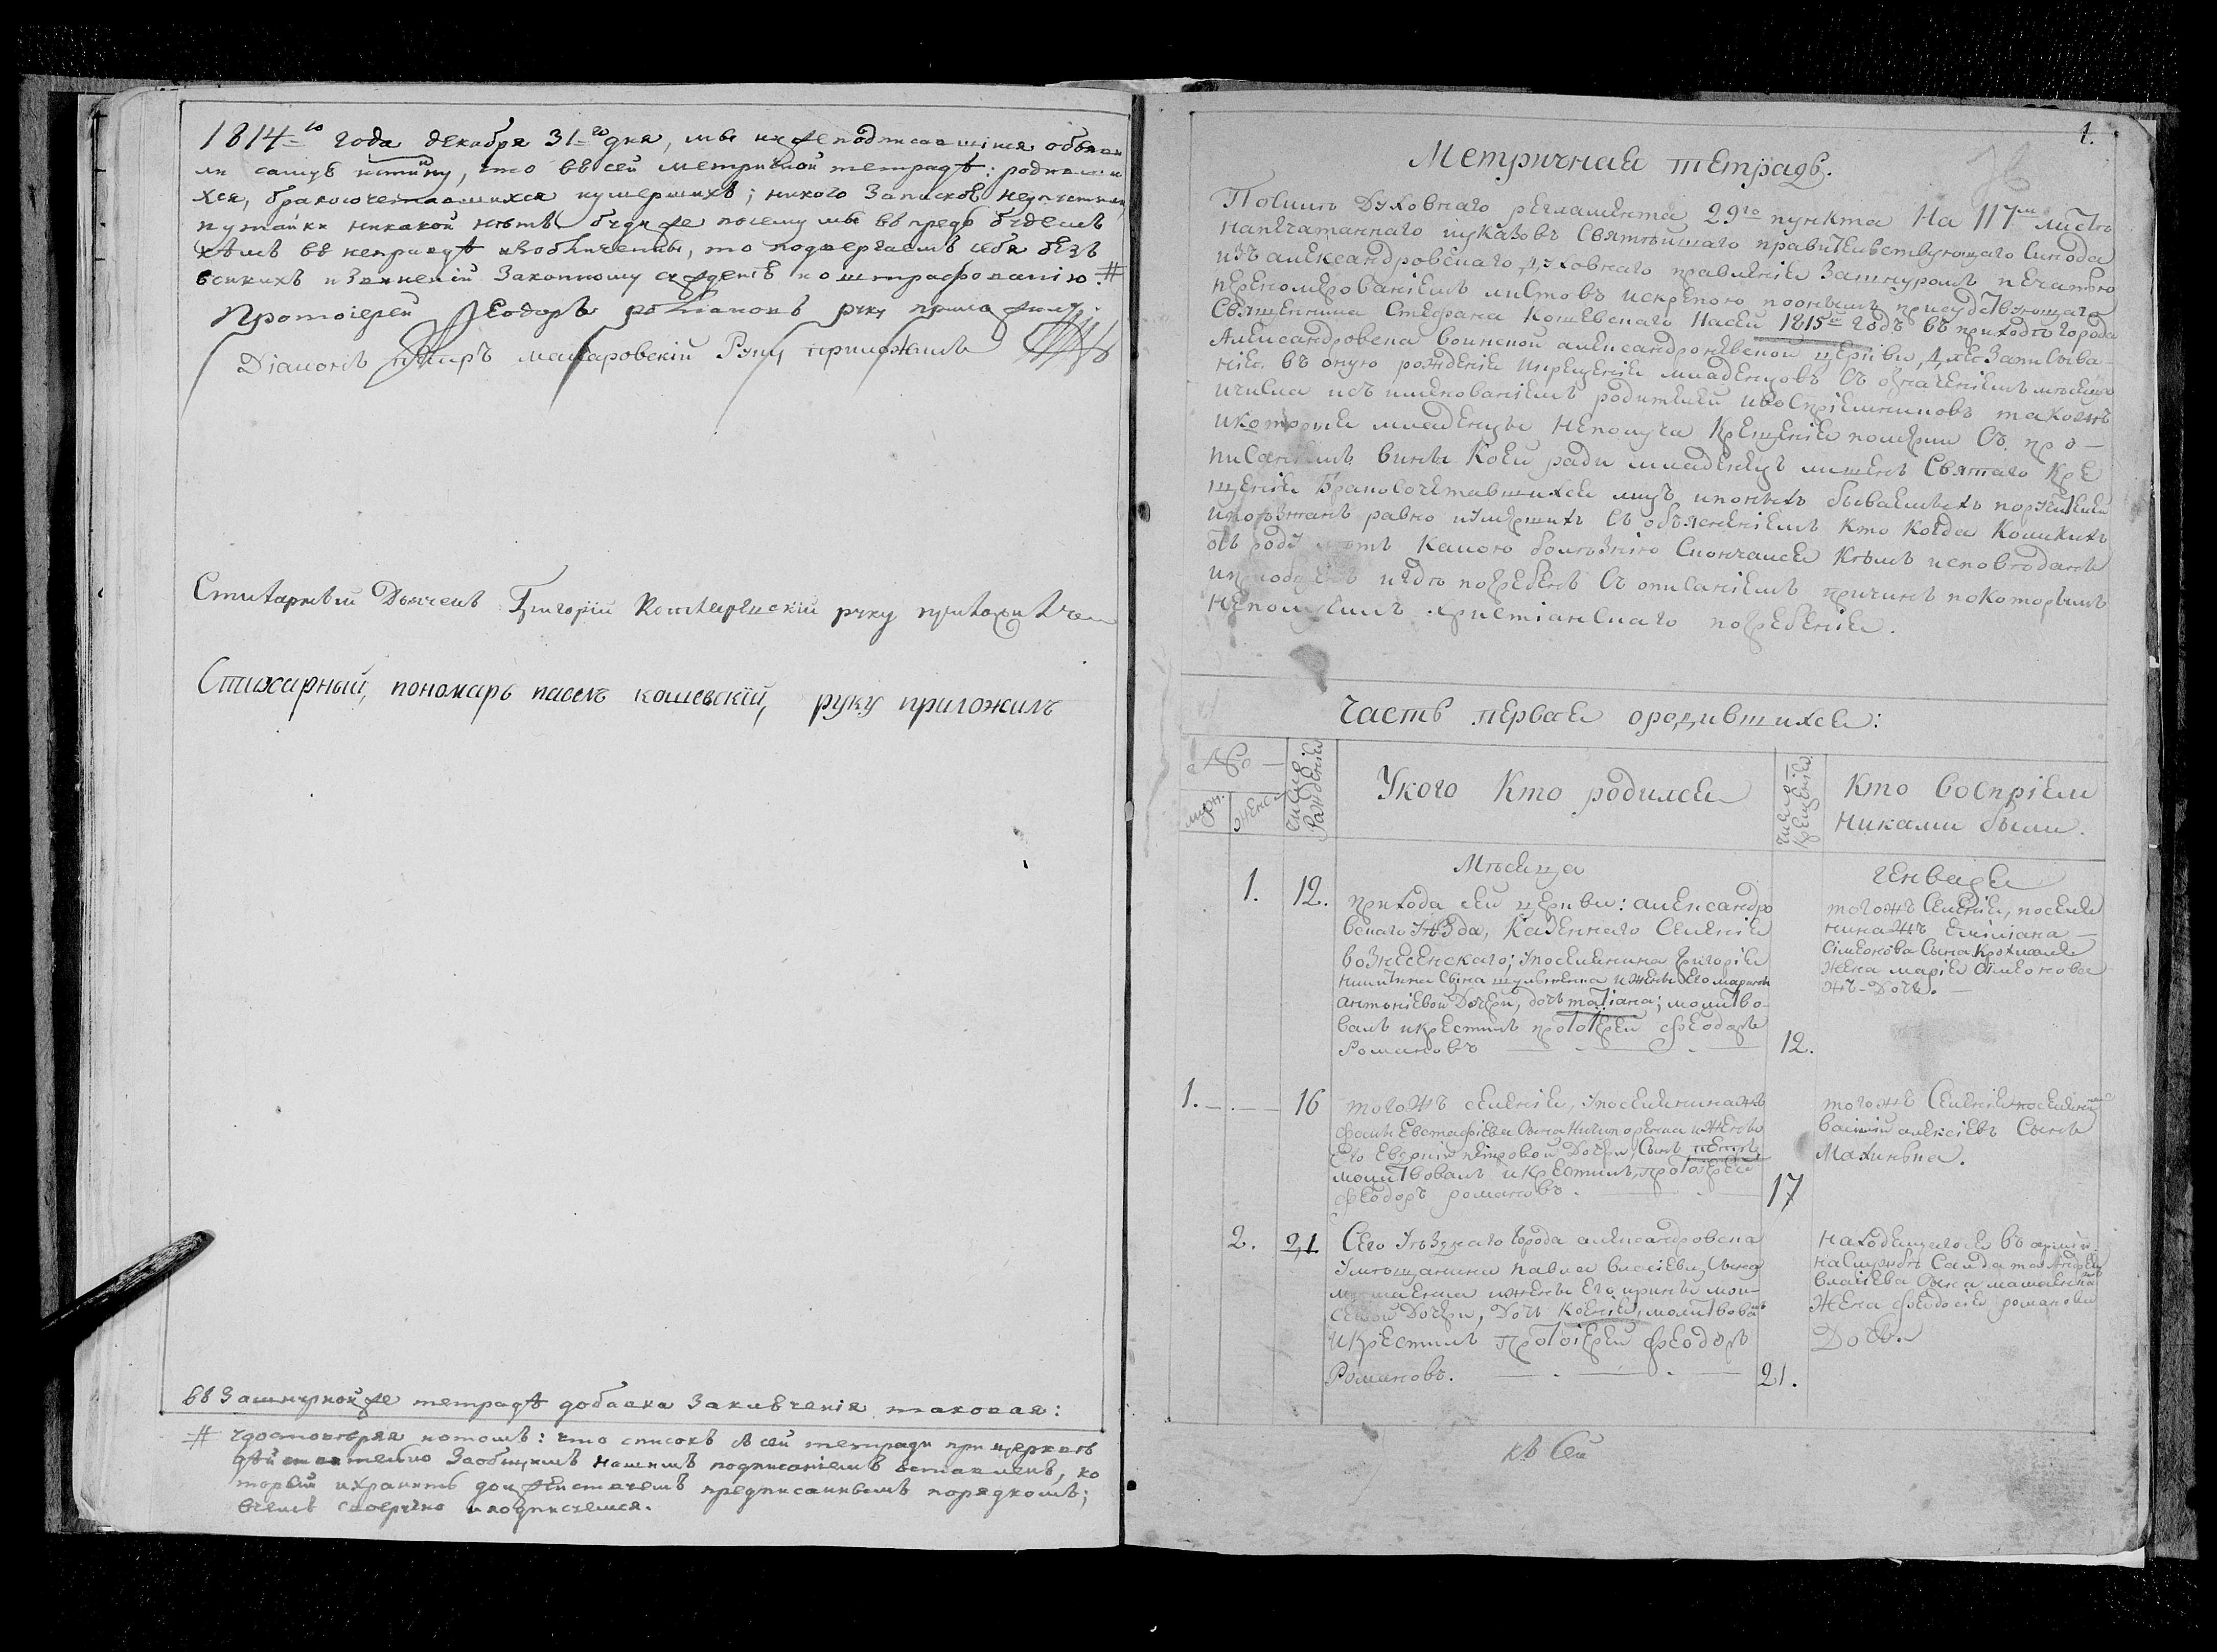 1814-го года декабря 31-го дня, мы нижеподписавшіися объяви
ли самую истинну, что въ сей метричной тетрадѣ: родивши
хся, бракосочетавшихся иумершихъ; никого Записков
никакой нѣтъ буди же посему мы въ предъ будемъ
кѣмъ въ неправдѣ изобличенны, то подвергаемъ себя безъ
всякихъ извиненій Законному сужденію и о штрафованію. #
Протоіерей Ѳеодоръ романовъ руку приложилъ
Діаконъ макаровскій Руку приложилъ
Стихарный Дьячекъ Григорій руку приложилъ
Стихарный, пономарь павелъ кошевскій, руку приложилъ
въ Зашнурной же тетрадѣ добавка Заключенія таковая:
# удостовѣряя потомъ: что списокъ ѣ сей тетради при церквѣ
дѣйствительно Заобщимъ нашимъ подписаніемъ оставленъ, ко
торый ихранить должны предписаннымъ порядкомъ;
вчемъ своеручно иподписуемся.
1.
Метричная тетрадь.
Посилѣ Духовнаго регламента 29го пункта На 117м листѣ
напечатаннаго иуказовъ Святѣйшаго правительствующаго Синода
изъ александровскаго духовнаго правленія Зашнуромъ печатью
перенумерованіемъ листовъ искрепою поонымъ присудствующаго
Священника Стефана Кошевскаго Насей 1815й годъ въ приходѣ города
Александровска воинской александроневской церкви, для Записыва-
нія въ оную рожденія икрещенія младенцовъ Съ означеніемъ мѣсяца
ичисла исъ имянованіемъ родителей ивоспріемниковъ такожъ
икоторые младенцы неполуча Крещенія померли Съ про-
писаніемъ вины Коей ради младенецъ лишенъ Святаго Кре
щенія бракосочетавшихся лицъ, ипонихъ бываемыхъ поручителей
равно иумершихъ Съ объясненіемъ Кто Когда Коликихъ
отъ роду лѣтъ Какою болѣзнію Скончался Кѣмъ исповѣданъ
ипріобщенъ игдѣ погребенъ Съ описаніемъ причинъ поКоторымъ
неполучилъ христіанскаго погребенія.
Часть первая ородившихся:
№
мужс. женс.
число Рожденія
Укого Кто родился
число Крещенія
Кто воспріем
никами были.
Мѣсяца Генваря
1. 12. прихода сей церкви: александро
вскаго уѣзда, Казеннаго Селенія
вознесенскаго; упоселянина григорія
никитина Сына иЖены Его марины
антоніевой Дочери, дочь татіана; молитво-
валъ икрестилъ протоіерей феодоръ
Романовъ
12.
тогожъ Селенія, поселя
нинажъ Еміліана
сімеонова Сына
жена марія сімеонова
жъ - Дочь.
1. 16 тогожъ селенія, упоселянинажъ
фомы Евстафіева Сына иЖены
Его Евдокіи петровой Дочери, Сынъ
молитвовалъ икрестилъ, протоіерей
феодоръ романовъ.
17
тогожъ Селенія поселянинъ
василій алексіевъ Сынъ
Махинька.
2. 21 Сего уѣзднаго города александровска
умѣщанина павла власіева Сына
ижены Его ирины мои-
сеевой Дочери, Дочь Ксенія, молитвовалъ
икрестилъ протоіерей феодоръ
Романовъ.
21.
находящагося въ арміи
Салдата Андрея
власіева Сына
жена феодосія романова
Дочь.
къ Сей